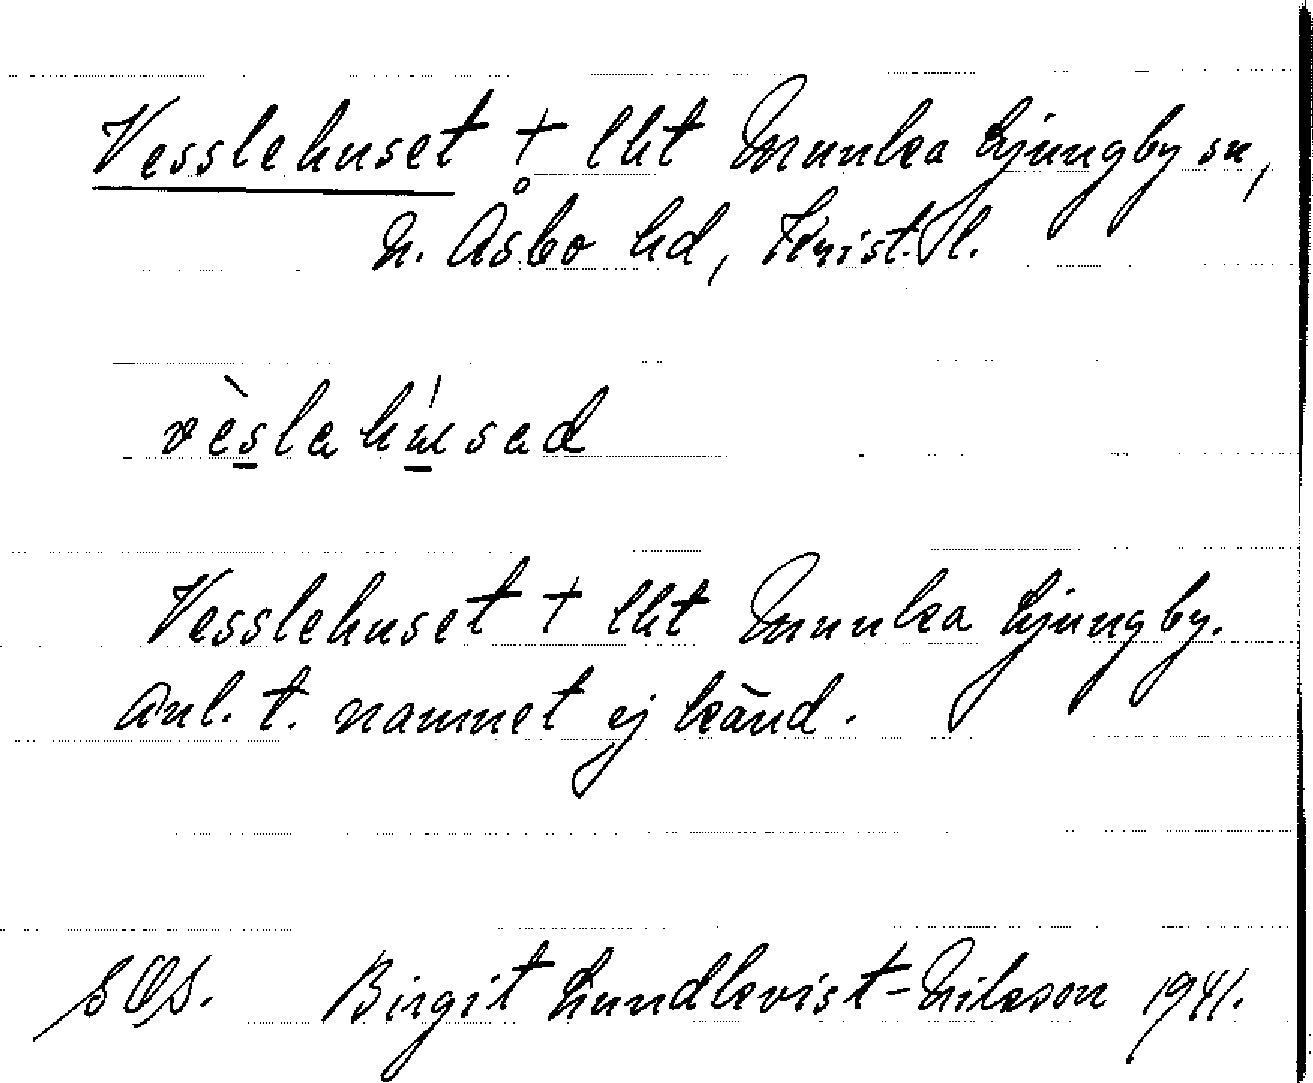 Vesslehuset + lht Munka Ljungby sn,
N. Åsbo hd, Krist. l.
vèslahúsad
Vesslehuset + lht Munka Ljungby.
Anl. t. namnet ej känd.
SOS. Birgit Lundkvist-Nilsson 1941.